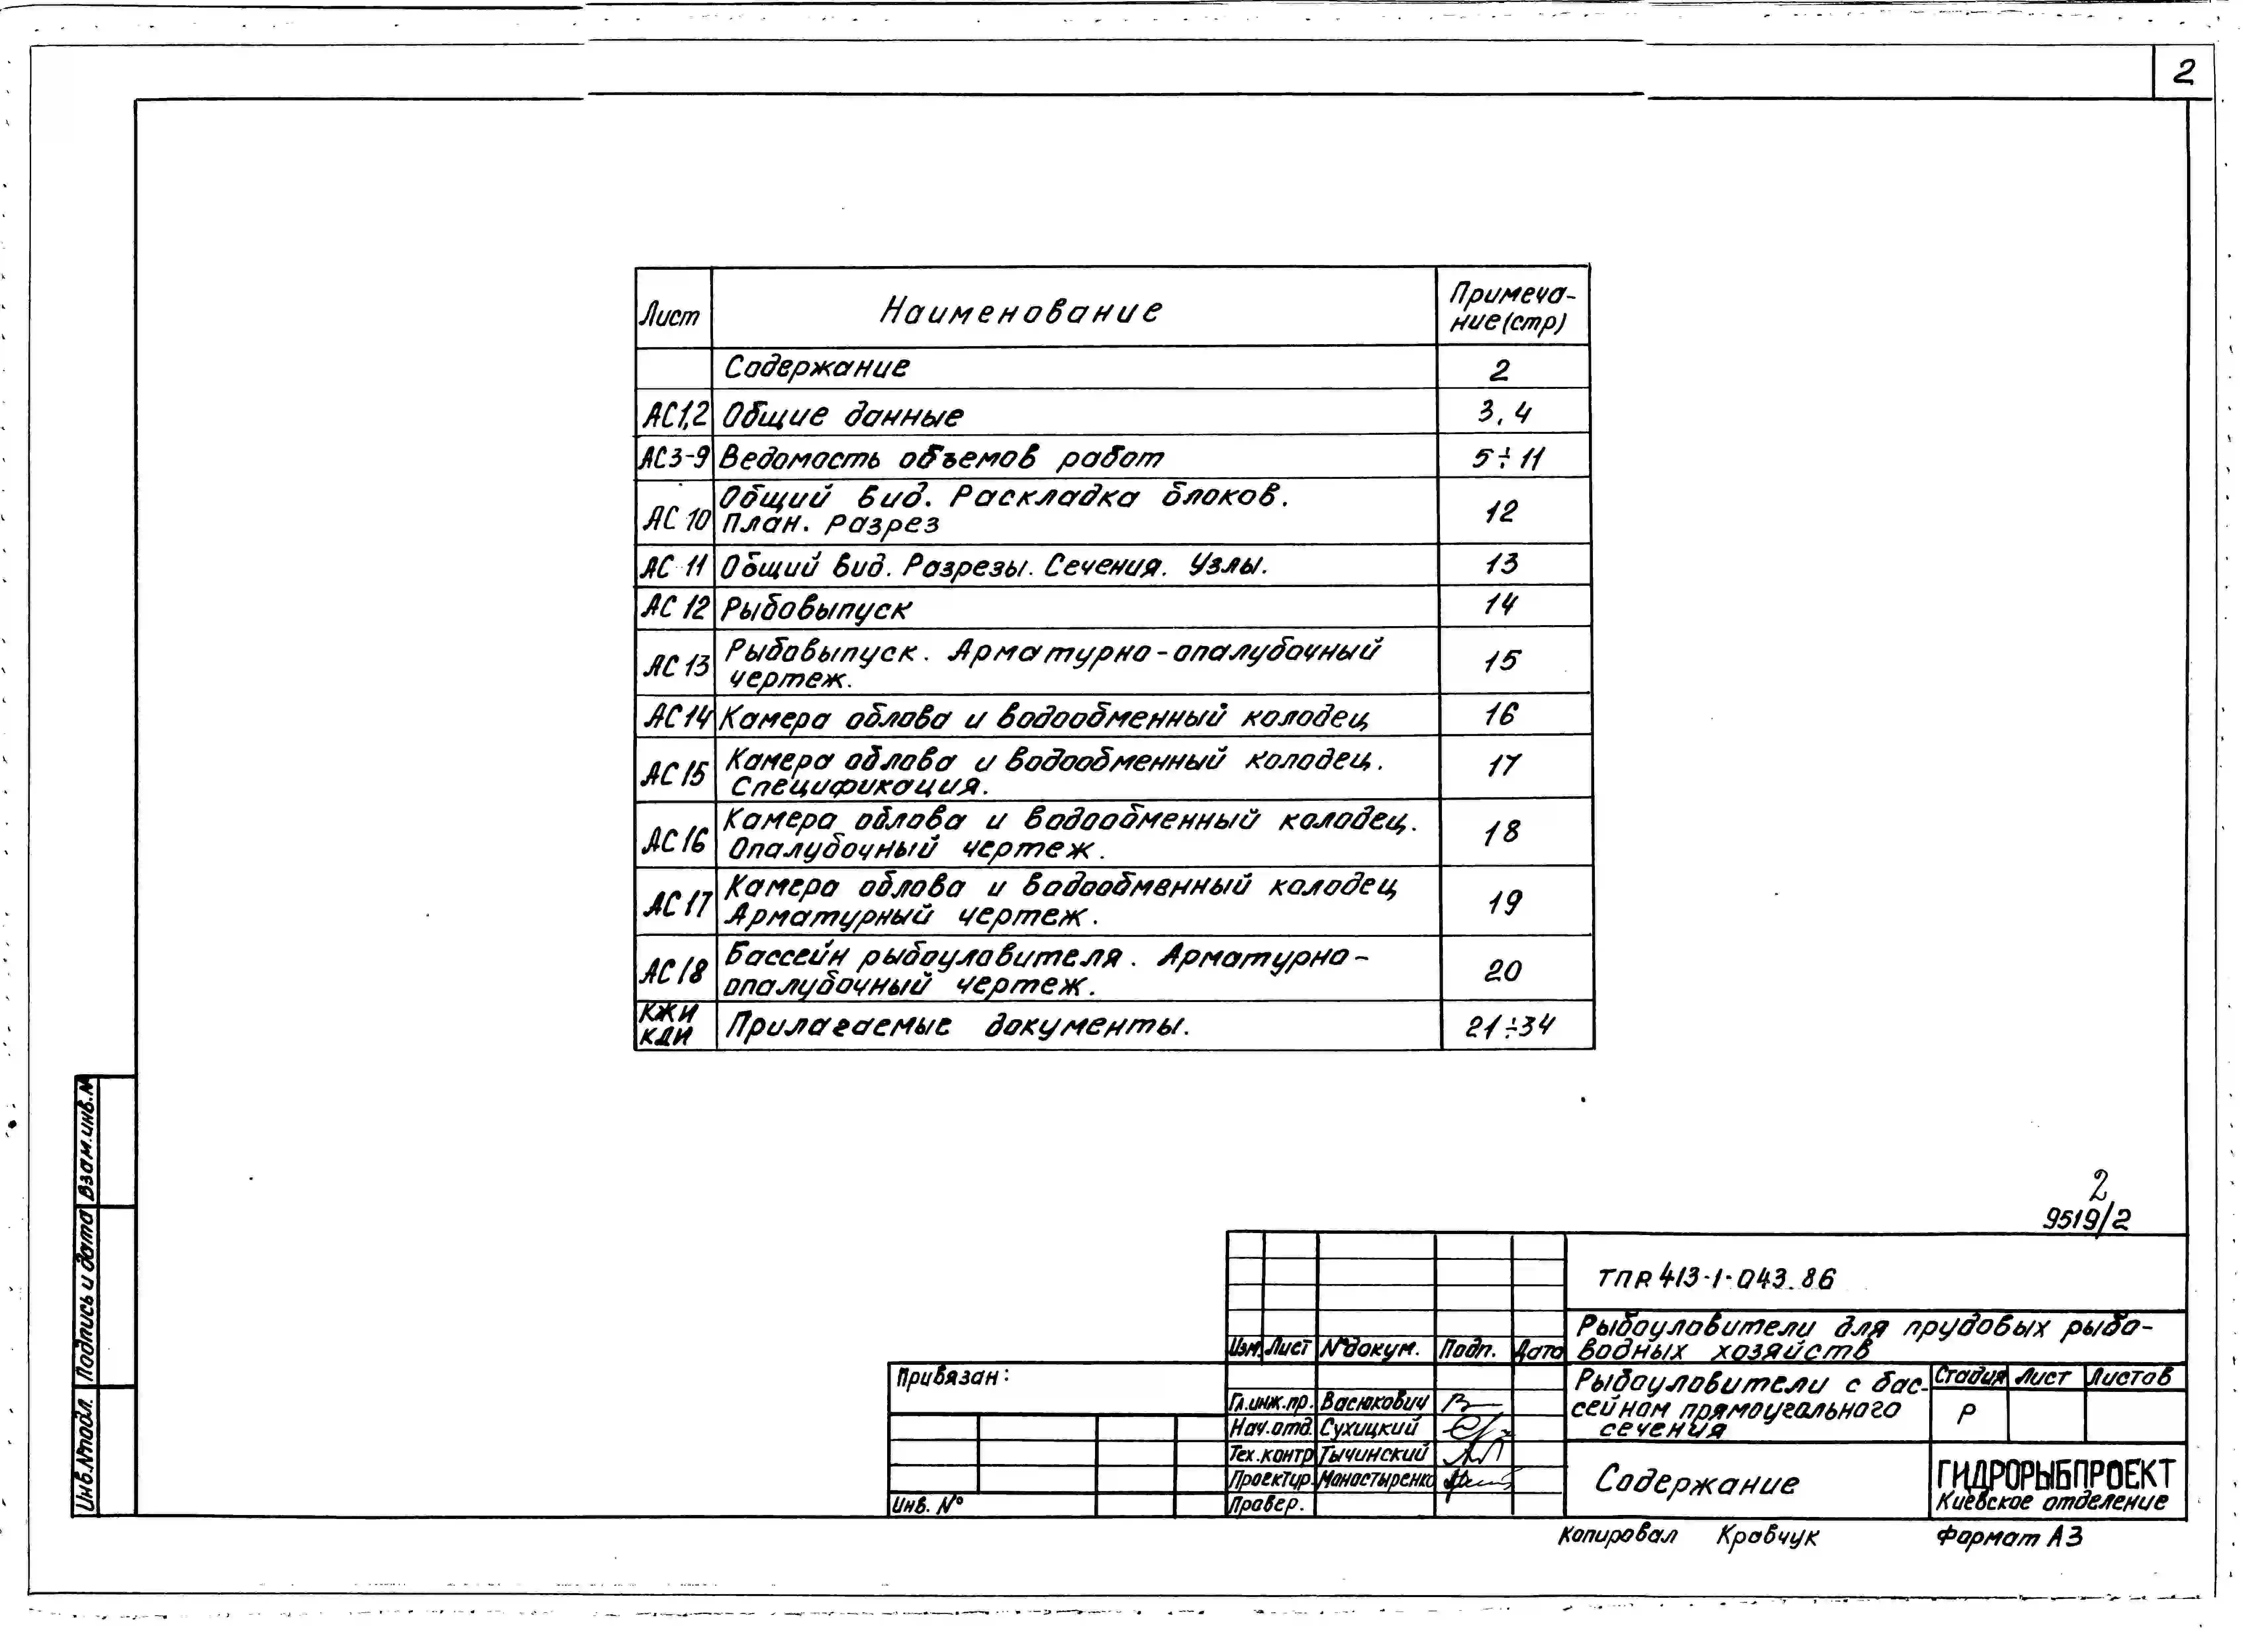 2
Лист Наименование Примеча-
ние(стр)
Содержание 2
АС1,2 Общие данные 3,4
АС3-9 Ведомость объемов работ 5÷11
АС 10 Общий вид. Раскладка блоков. 12
План. Разрез
АС 11 Общий вид. Разрезы. Сечения. Узлы. 13
АС 12 Рыбовыпуск 14
АС 13 Рыбовыпуск. Арматурно-опалубочный 15
чертеж.
АС14 Камера облова и водообменный колодец 16
АС 15 Камера облова и водообменный колодец. 17
Спецификация.
АС 16 Камера облова и водообменный колодец. 18
Опалубочный чертеж.
АС 17 Камера облова и водообменный колодец 19
Арматурный чертеж.
АС 18 Бассейн рыбоуловителя. Арматурно- 20
опалубочный чертеж.
КЖИ
КДИ Прилагаемые документы. 21÷34
Взам.инв.№
Подпись и дата
Инв.№подл.
2
9519/2
ТПР 413-1-043.86
Рыбоуловители для прудовых рыбо-
водных хозяйств
Изм. Лист №докум. Подп. Дата
Привязан:
Рыбоуловители с бас-
сейном прямоугольного
сечения
Стадия Лист Листов
Р
Гл.инж.пр. Васюкович
Нач.отд. Сухицкий
Тех.контр Тычинский
Проектир. Монастыренко
Провер.
Инв. №
Содержание
ГИДРОРЫБПРОЕКТ
Киевское отделение
Копировал Кравчук Формат А3